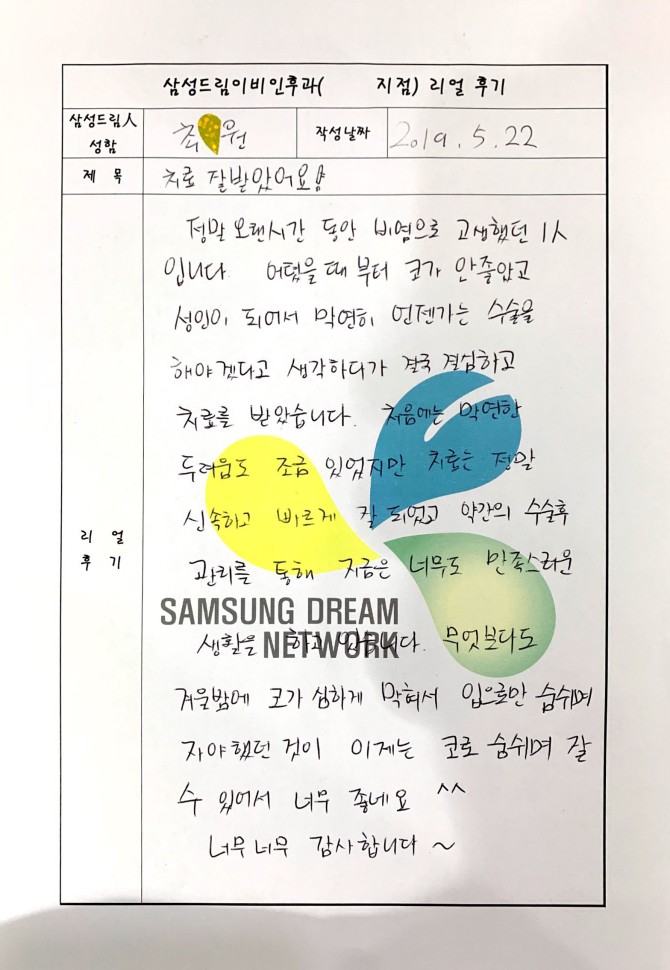 삼성드림이비인후과( 지점) 리얼 후기
삼성드림人
성함
최 원
작성날짜
2019. 5. 22
제 목
치료 잘받았어요
리 얼
후 기
정말 오랜시간 동안 비염으로 고생했던 1人
입니다. 어렸을때 부터 코가 안좋았고
성인이 되어서 막연히 언젠가는 수술을
해야겠다고 생각하다가 결국 결심하고
치료를 받았습니다. 처음에는 막연한
두려움도 조금 있었지만 치료는 정말
신속하고 바르게 잘 되었고 약간의 수술후
관리를 통해 지금은 너무도 만족스러운
SAMSUNG DREAM
NETWORK
생활을 하고 있습니다. 무엇보다도
겨울밤에 코가 심하게 막혀서 입으로만 숨쉬며
자야했던 것이 이제는 코로 숨쉬며 잘
수 있어서 너무 좋네요 ^^
너무너무 감사합니다 ~